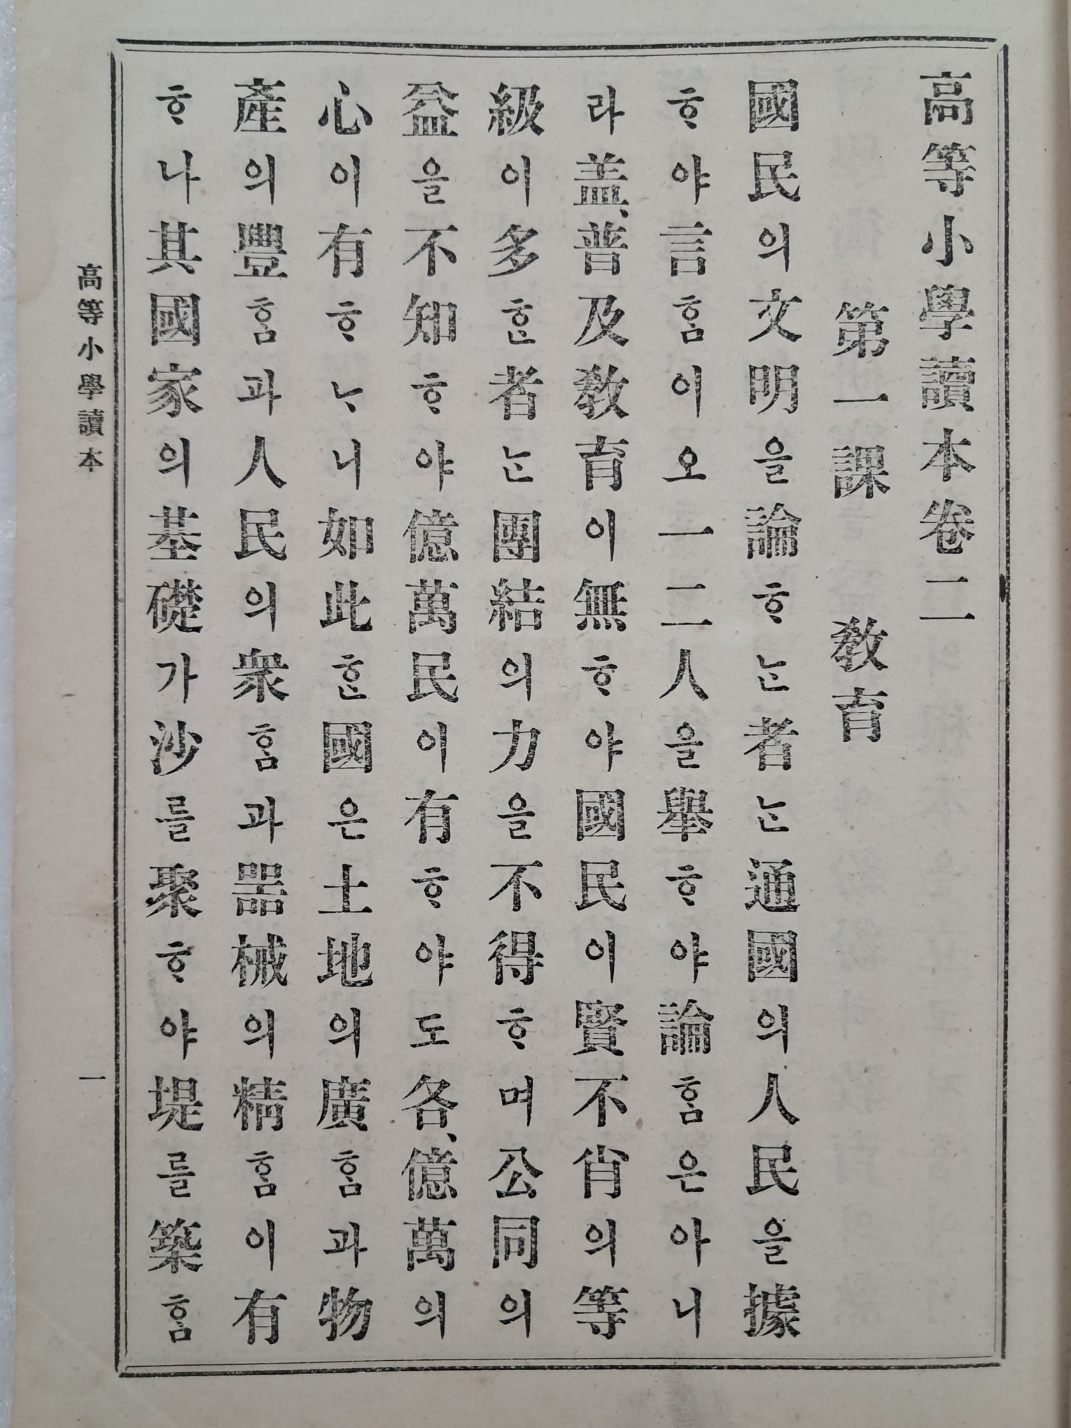 高等小學讀本卷二
第一課 敎育
國民의文明을論ᄒᆞᄂᆞᆫ者ᄂᆞᆫ通國의人民을據
ᄒᆞ야言ᄒᆞᆷ이오一二人을擧ᄒᆞ야論ᄒᆞᆷ은아니
라盖、普及敎育이無ᄒᆞ야國民이賢不肖의等
級이多ᄒᆞᆫ者ᄂᆞᆫ團結의力을不得ᄒᆞ며公同의
益을不知ᄒᆞ야億萬民이有ᄒᆞ야도各、億萬의
心이有ᄒᆞᄂᆞ니如此ᄒᆞᆫ國은土地의廣ᄒᆞᆷ과物
產의豐ᄒᆞᆷ과人民의衆ᄒᆞᆷ과器械의精ᄒᆞᆷ이有
ᄒᆞ나其國家의基礎가沙를聚ᄒᆞ야堤를築ᄒᆞᆷ
高等小學讀本
一